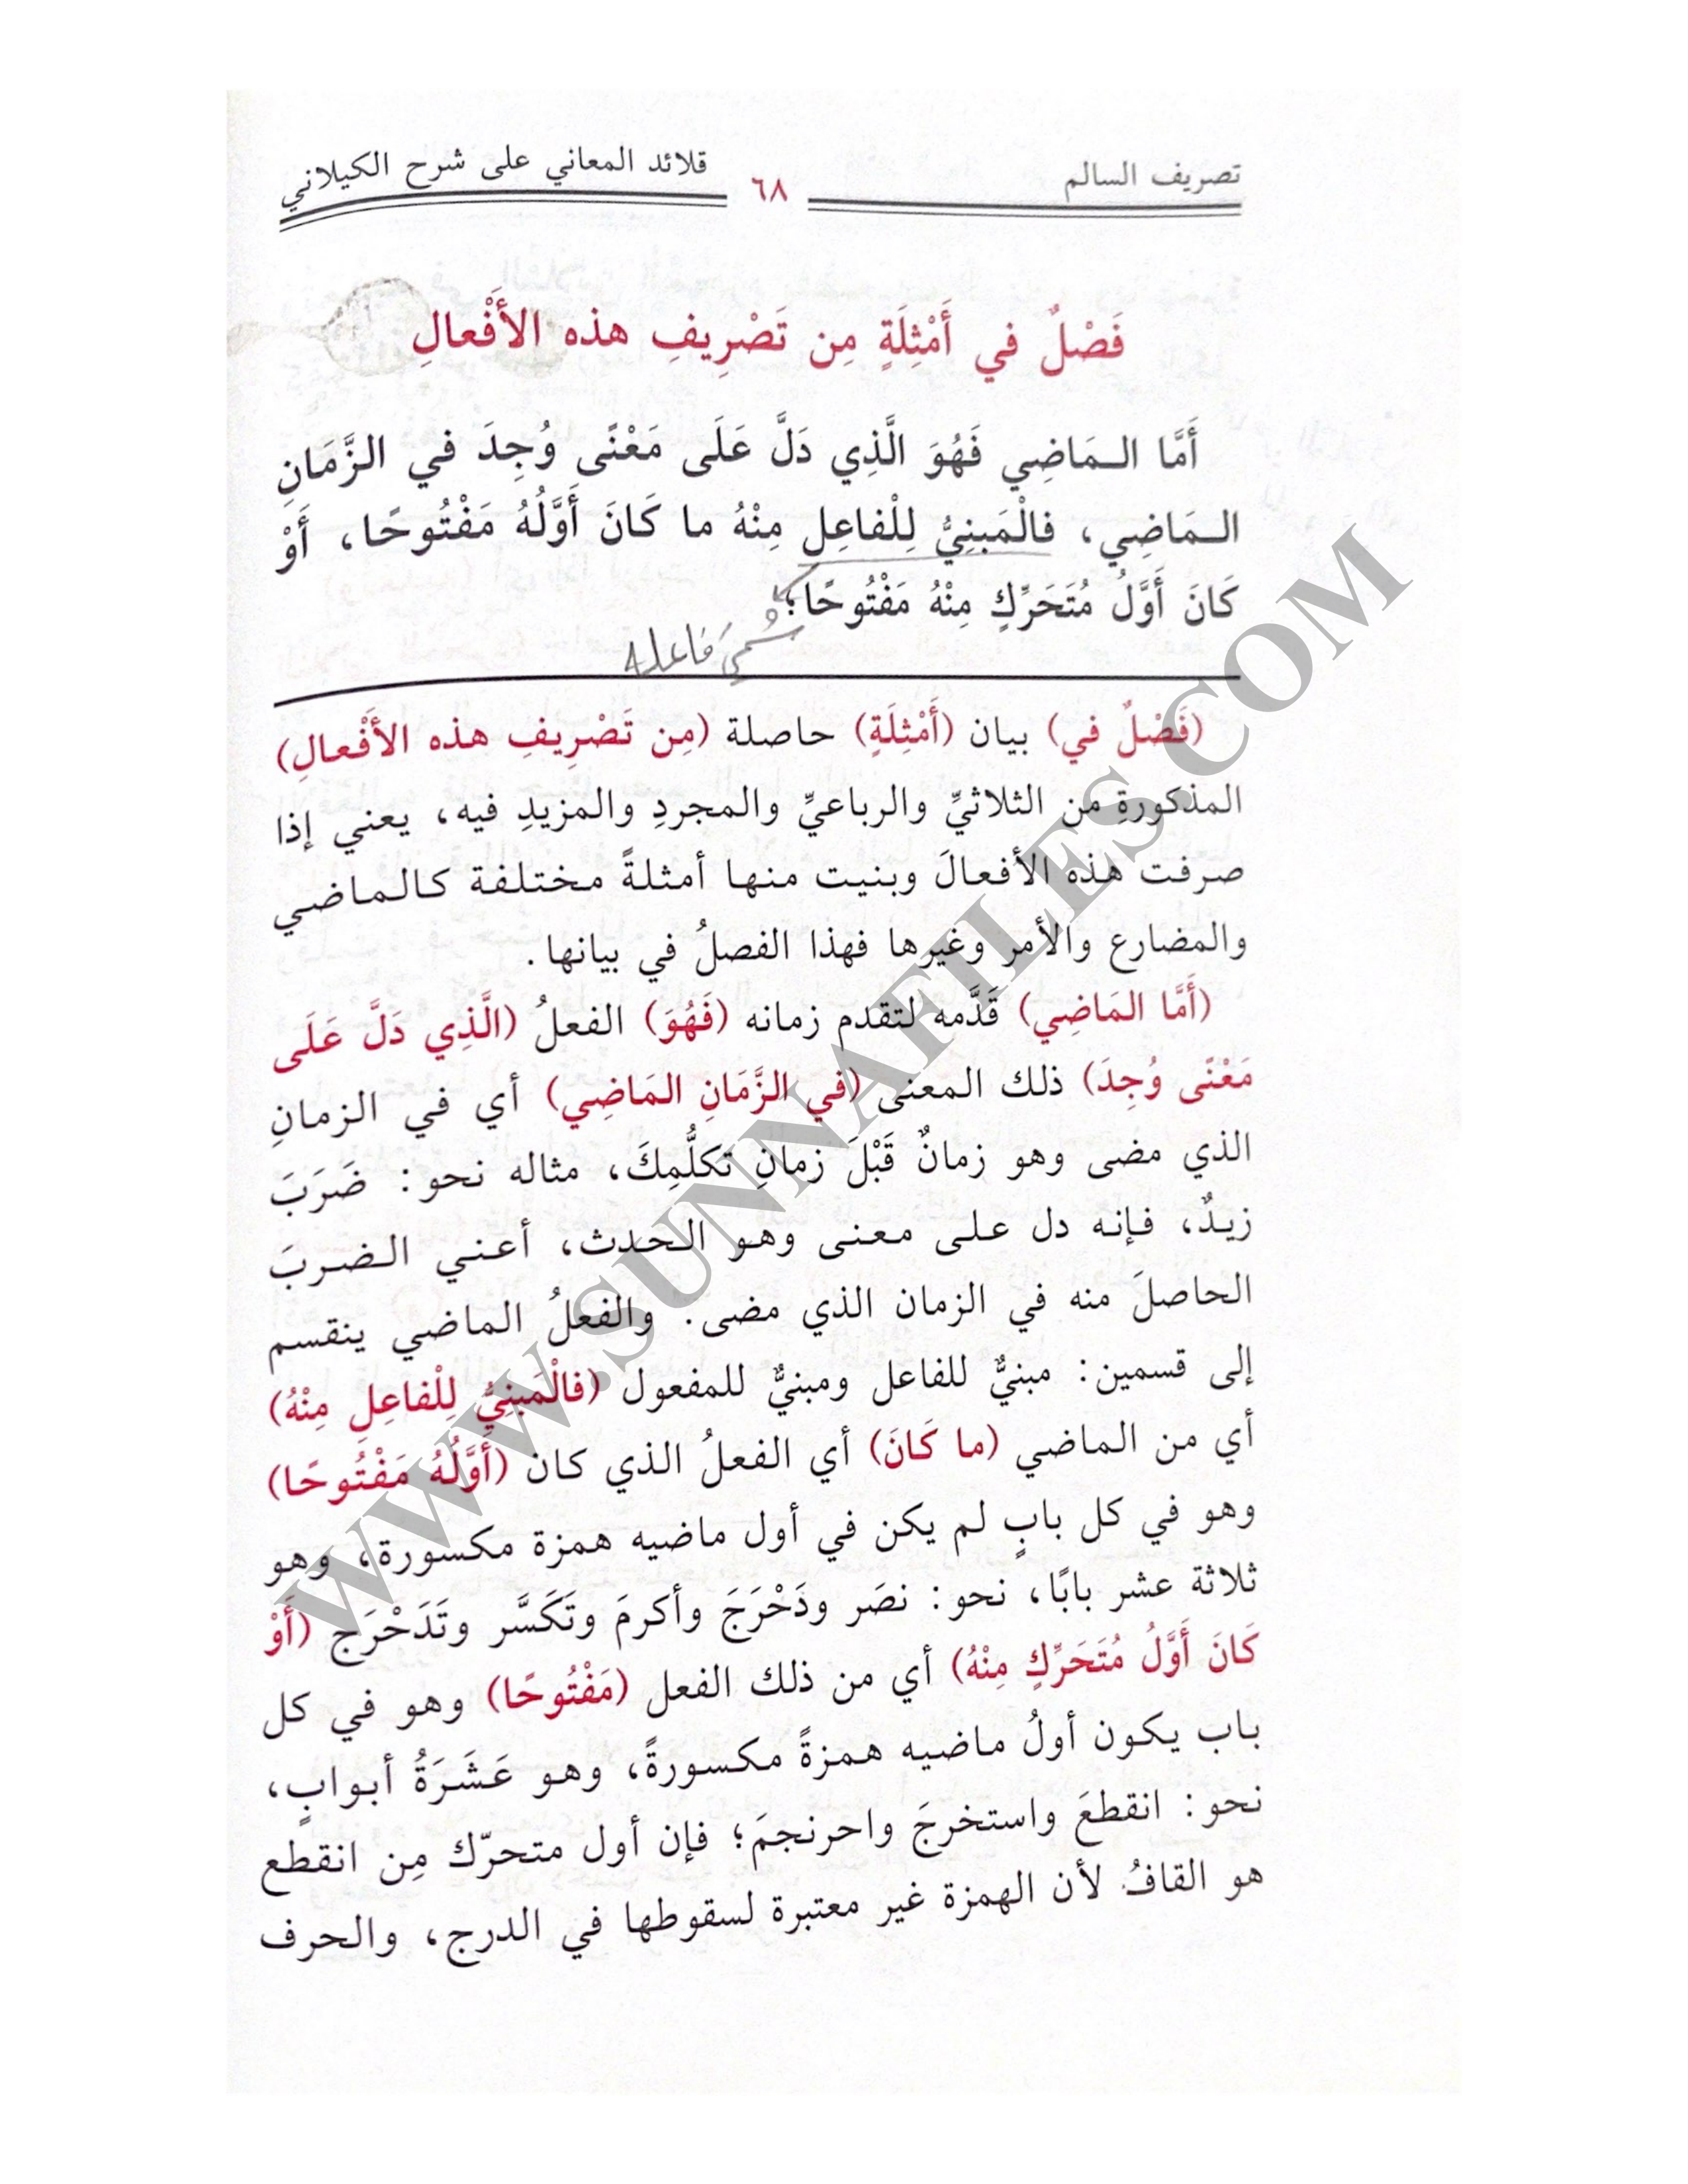 تصريف السالم ٦٨ قلائد المعاني على شرح الكيلاني
فَصْلٌ في أَمْثِلَةٍ مِن تَصْرِيفِ هذه الأَفْعالِ
أَمَّا الـمَاضِي فَهُوَ الَّذِي دَلَّ عَلَى مَعْنًى وُجِدَ في الزَّمَانِ
الـمَاضِي، فالْمَبنِيُّ لِلْفاعِلِ مِنْهُ ما كَانَ أَوَّلُهُ مَفْتُوحًا، أَوْ
كَانَ أَوَّلُ مُتَحَرِّكٍ مِنْهُ مَفْتُوحًا؛
سُمِّيَ فاعله
(فَصْلٌ في) بيان (أَمْثِلَةٍ) حاصلة (مِن تَصْرِيفِ هذه الأَفْعالِ)
المذكورةِ من الثلاثيِّ والرباعيِّ والمجردِ والمزيدِ فيه، يعني إذا
صرفت هذه الأفعالَ وبنيت منها أمثلةً مختلفة كالماضي
والمضارع والأمر وغيرها فهذا الفصلُ في بيانها.
(أَمَّا المَاضِي) قَدَّمه لتقدم زمانه (فَهُوَ) الفعلُ (الَّذِي دَلَّ عَلَى
مَعْنًى وُجِدَ) ذلك المعنى (في الزَّمَانِ المَاضِي) أي في الزمانِ
الذي مضى وهو زمانٌ قَبْلَ زمانِ تكلُّمِكَ، مثاله نحو: ضَرَبَ
زيدٌ، فإنه دل على معنى وهو الحدث، أعني الضربَ
الحاصلَ منه في الزمان الذي مضى. والفعلُ الماضي ينقسم
إلى قسمين: مبنيٌّ للفاعل ومبنيٌّ للمفعول (فالْمَبنِيُّ لِلْفاعِلِ مِنْهُ)
أي من الماضي (ما كَانَ) أي الفعلُ الذي كان (أَوَّلُهُ مَفْتُوحًا)
وهو في كل بابٍ لم يكن في أول ماضيه همزة مكسورة، وهو
ثلاثة عشر بابًا، نحو: نصَر ودَحْرَجَ وأكرمَ وتَكَسَّر وتَدَحْرَج (أَوْ
كَانَ أَوَّلُ مُتَحَرِّكٍ مِنْهُ) أي من ذلك الفعل (مَفْتُوحًا) وهو في كل
باب يكون أولُ ماضيه همزةً مكسورةً، وهو عَشَرَةُ أبوابٍ،
نحو: انقطعَ واستخرجَ واحرنجمَ؛ فإن أول متحرّك مِن انقطع
هو القافُ لأن الهمزة غير معتبرة لسقوطها في الدرج، والحرف
WWW.SUNNAFILES.COM